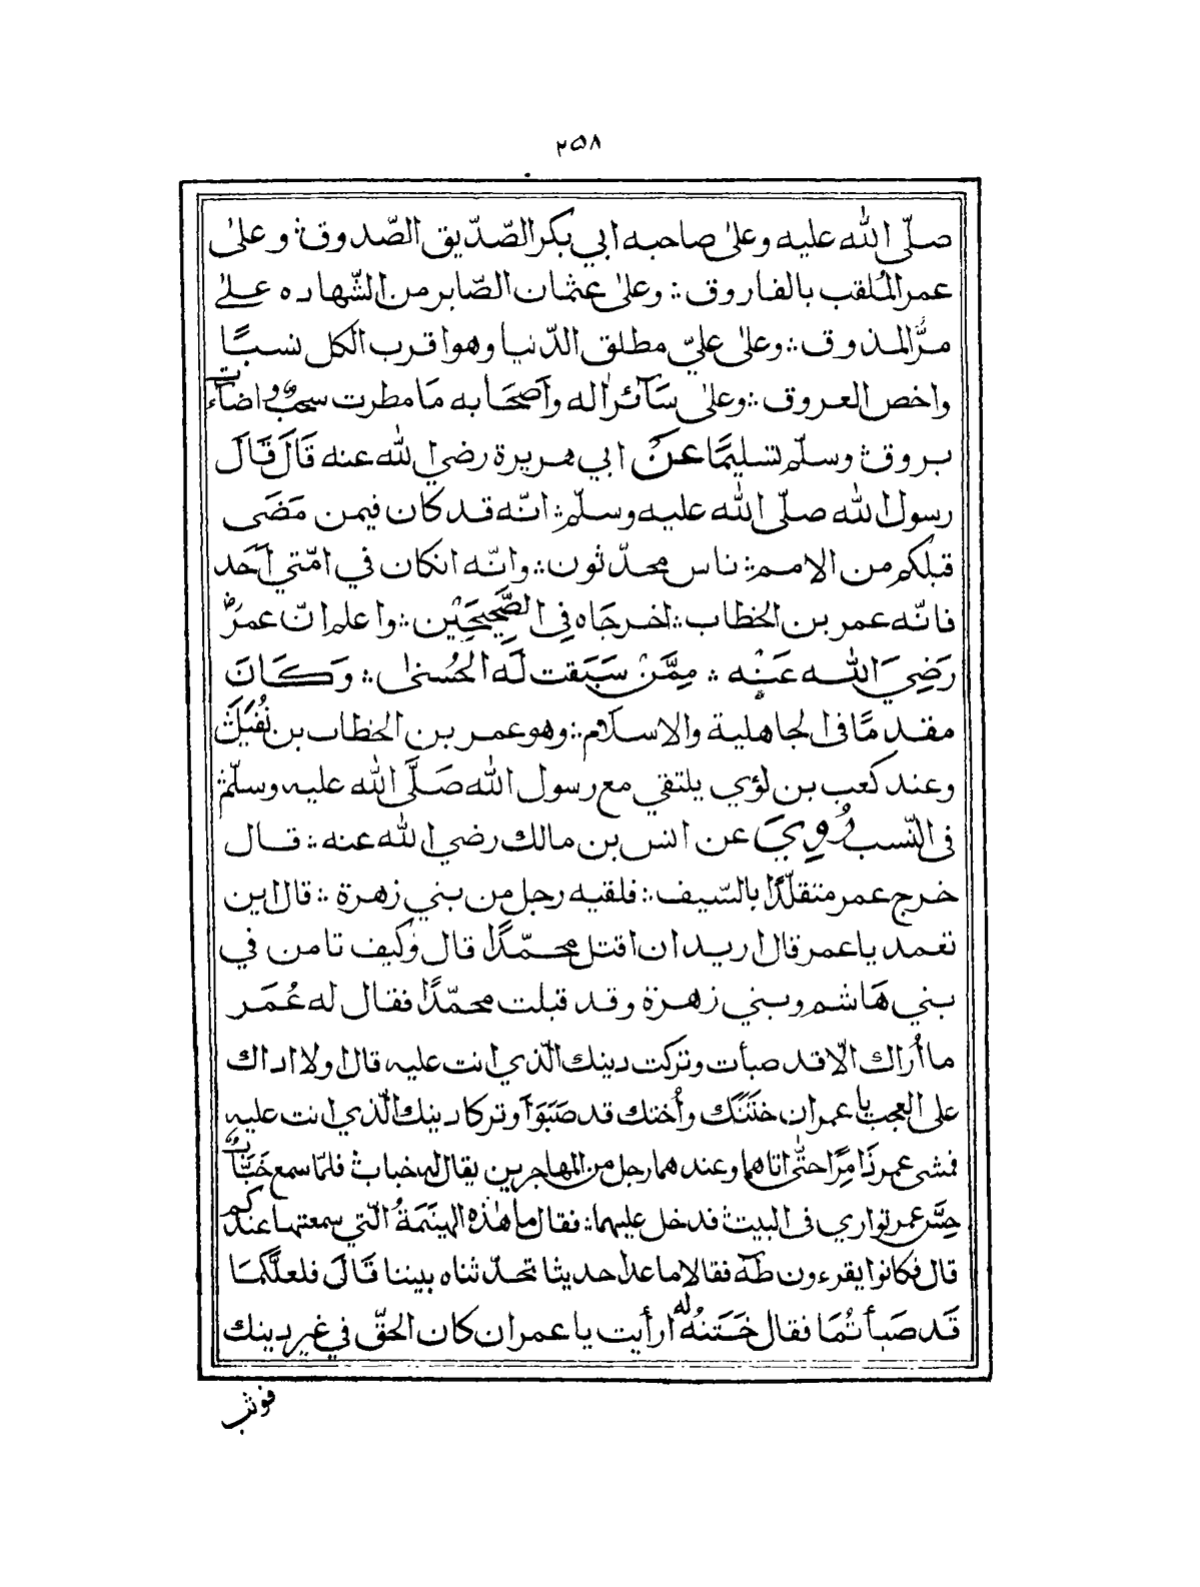 ٢٥٨
صلّى الله عليه وعلى صاحبه ابي بكر الصّدّيق الصّدوق؛ وعلى
عمر المُلقب بالفاروق؛ وعلى عثمان الصّابر من الشّهاده على
مرّ المذوق؛ وعلى عليّ مطلق الدّنيا وهو اقرب الكل نسبًا
واخص العروق؛ وعلى سَآئر اٰله وأصحَابه مَا مطرت سحبٌ واضآءت
بروق؛ وسلّم تسليمًا عَنْ ابي هريرة رضي الله عنه قَالَ قَالَ
رسول الله صلّى الله عليه وسلّم؛ انّه قد كان فيمن مَضَى
قبلكم من الامم؛ ناس محدّثون؛ وانّه انكان في امّتي اَحَد
فانّه عمر بن الخطاب؛ اخرجَاه فِى الصَّحِيحَيْن؛ واعلم انّ عمرَ
رَضِيَ الله عَنْه؛ مِمَّنْ سَبَقت لَه الحُسنى؛ وَكَانَ
مقدمًا فى الجاهلية والاسلام؛ وهو عمر بن الخطاب بن نُفَيل
وعند كعب بن لؤي يلتقي مع رسول الله صَلَّى الله عليه وسلّم
فى النّسب رُوِيَ عن انس بن مالك رضي الله عنه؛ قال
خرج عمر متقلّدًا بالسّيف؛ فلقيه رجل من بني زهرة؛ قال اين
تعمد يا عمر قال اريد ان اقتل محمّدًا قال وكيف تامن في
بني هَاشم وبني زهرة وقد قبلت محمّدًا فقال له عُمَر
ما أُراك الّا قد صبأت وتركت دينك الّذي انت عليه قال اولا ادلك
على العجب يا عمر ان خَتَنَك وأُختك قد صَبَوَا وتركا دينك الّذي انت عليه
فمشى عمر ذَامِرًا حتّى اتاهما وعندهما رجل من المهاجرين يقال له خباب فلمّا سمع خَبّاب
حِسّ عمر توارى فى البيت فدخل عليهما؛ فقال ما هٰذه الهينَمَةُ الّتي سمعتها عندكم
قال فكانوا يقرءون طٰه فقالا ما عدا حديثا تحدّثناه بيننا قَالَ فلعلّكمَا
قَد صَبأتُمَا فقال له خَتَنُه ارأيت يا عمر ان كان الحقّ في غير دينك
فوثب